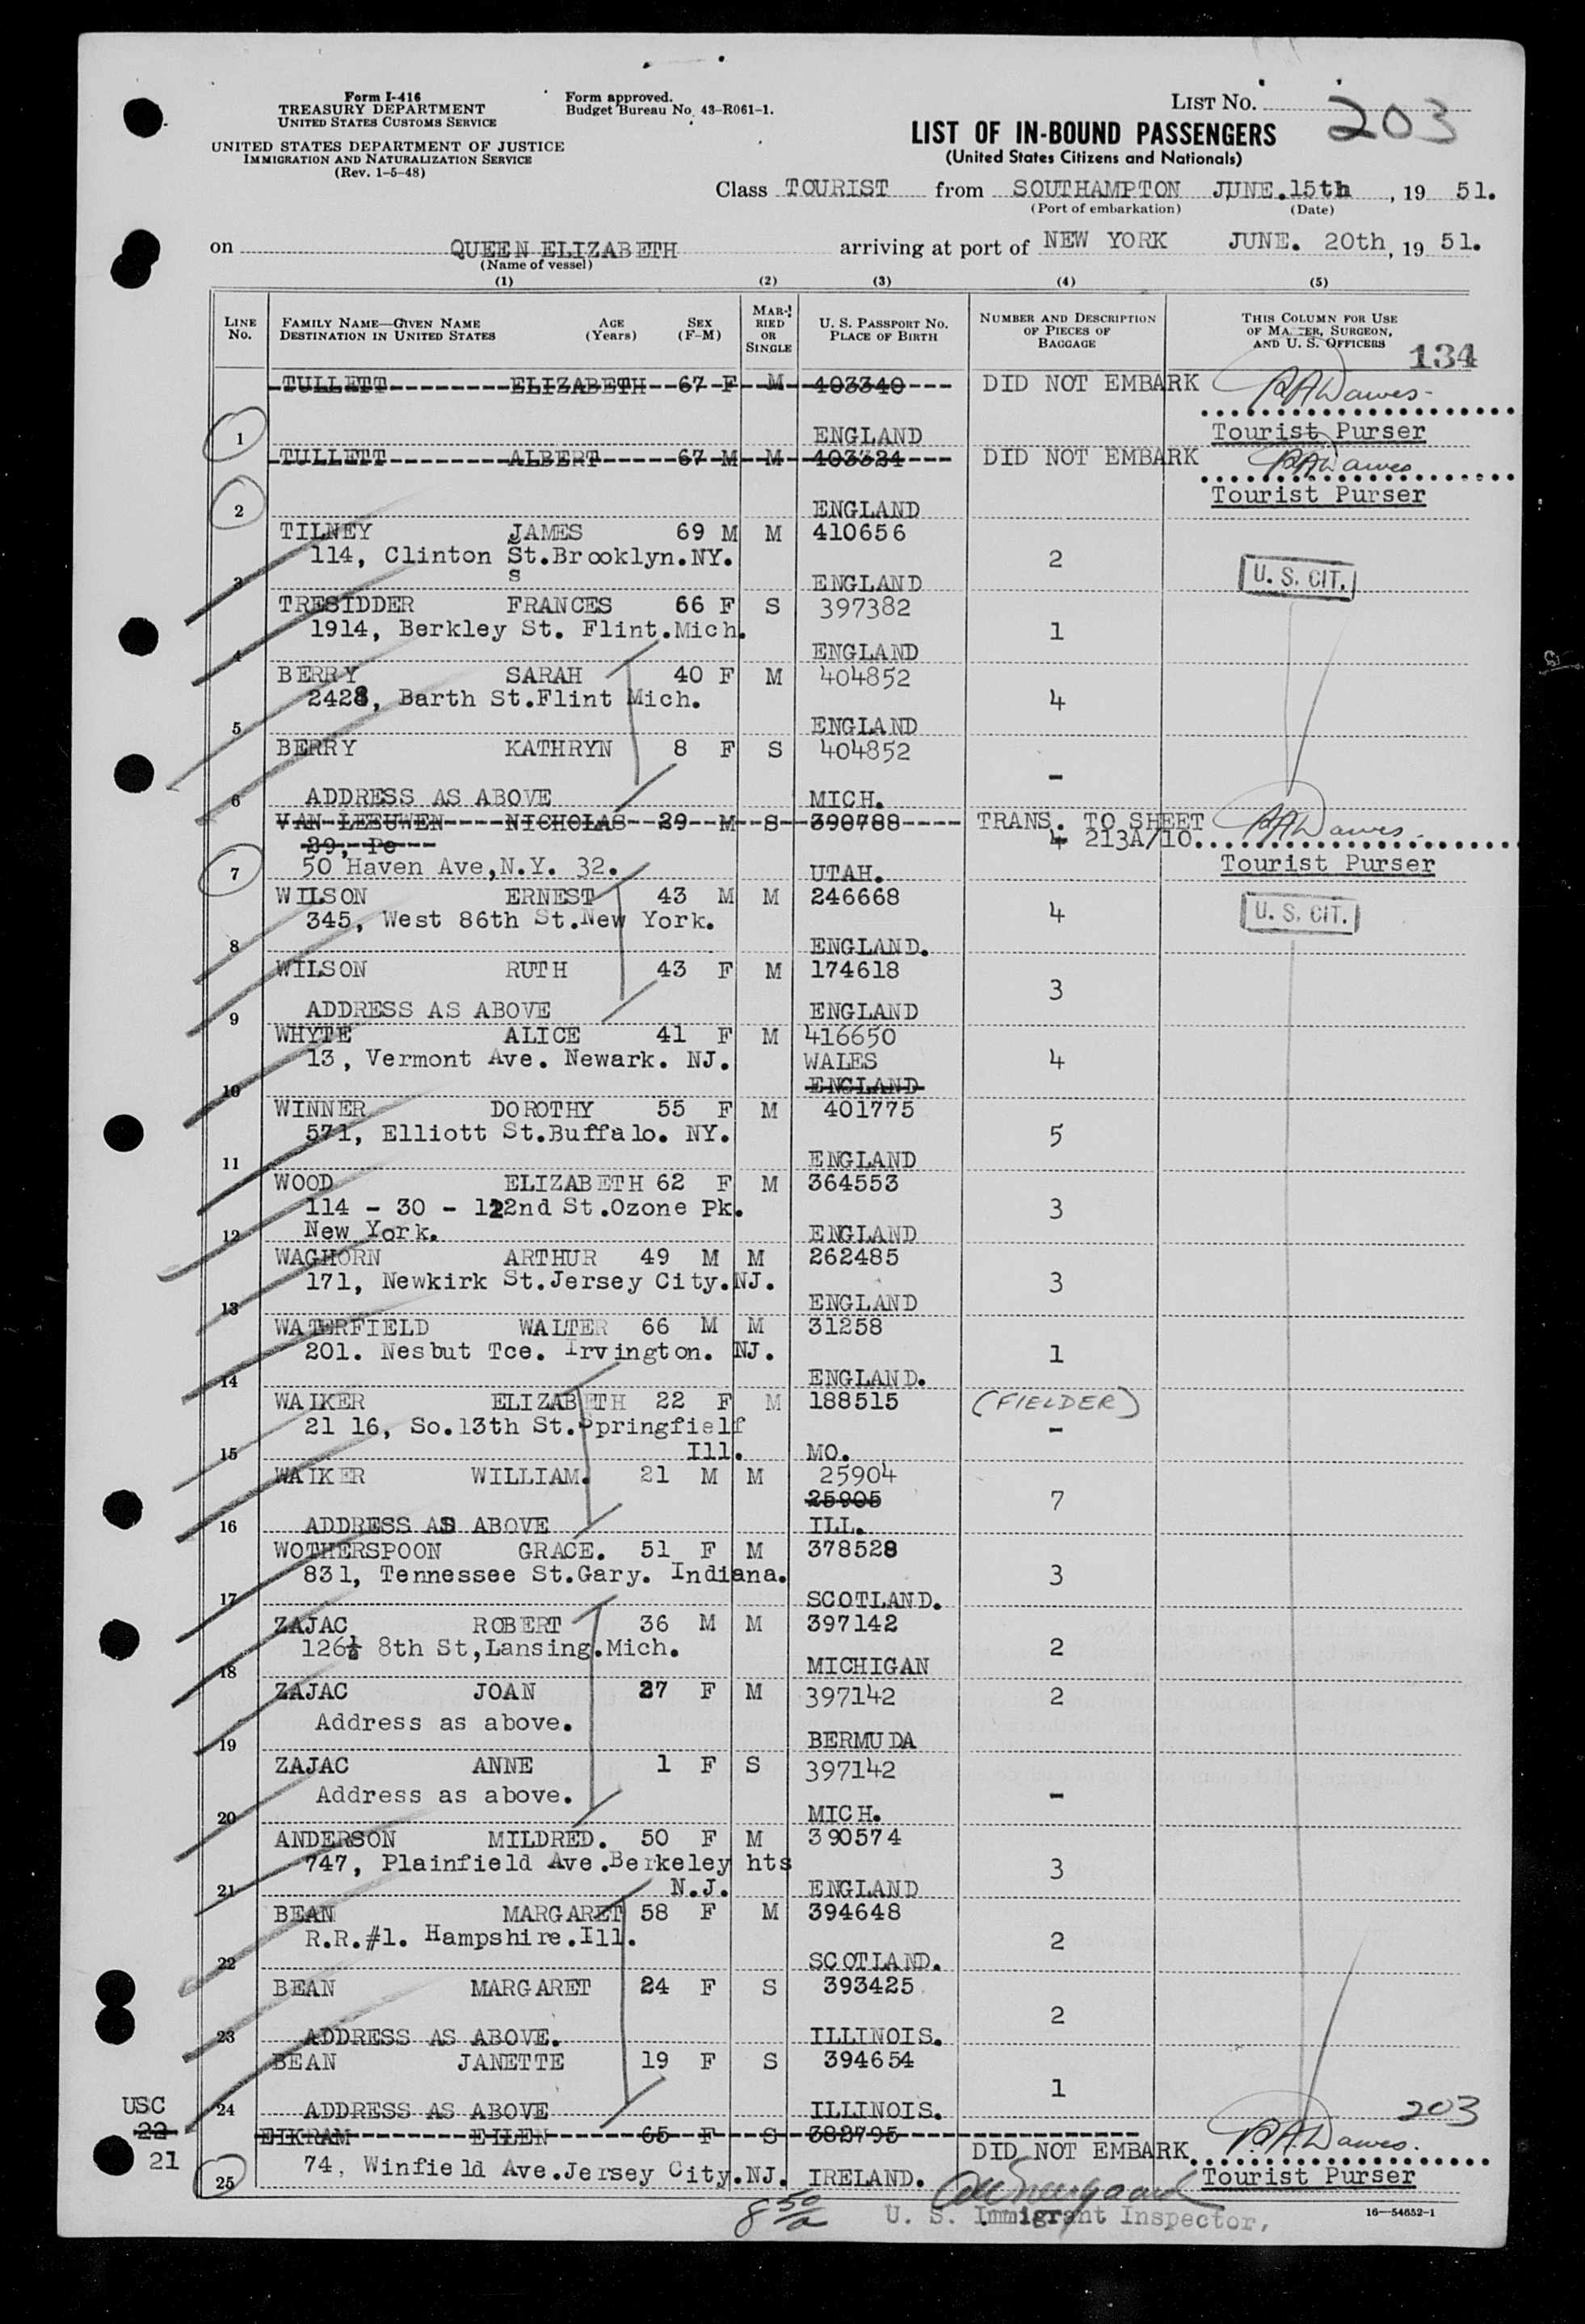 Form I-416
TREASURY DEPARTMENT
UNITED STATES CUSTOMS SERVICE
UNITED STATES DEPARTMENT OF JUSTICE
IMMIGRATION AND NATURALIZATION SERVICE
(Rev. 1-5-48)
Form approved.
Budget Bureau No. 43-R061-1.
LIST NO. 203
LIST OF IN-BOUND PASSENGERS
(United States Citizens and Nationals)
Class TOURIST from SOUTHAMPTON JUNE.15th, 19 51.
(Port of embarkation) (Date)
on QUEEN ELIZABETH arriving at port of NEW YORK JUNE. 20th, 19 51.
(Name of vessel)
(1) (2) (3) (4) (5)
LINE NO. FAMILY NAME—GIVEN NAME DESTINATION IN UNITED STATES AGE (Years) SEX (F-M) MARRIED OR SINGLE U. S. PASSPORT NO. PLACE OF BIRTH NUMBER AND DESCRIPTION OF PIECES OF BAGGAGE THIS COLUMN FOR USE OF MASTER, SURGEON, AND U. S. OFFICERS
134
TULLETT ELIZABETH 67 F M 403340 DID NOT EMBARK R.A.Dawes
1 ENGLAND Tourist Purser
TULLETT ALBERT 67 M M 403324 DID NOT EMBARK R.A.Dawes
2 ENGLAND Tourist Purser
TILNEY JAMES 69 M M 410656
114, Clinton St.Brooklyn.NY. 2
s
3 ENGLAND U. S. CIT.
TRESIDDER FRANCES 66 F S 397382
1914, Berkley St. Flint.Mich. 1
4 ENGLAND
BERRY SARAH 40 F M 404852
2428, Barth St.Flint Mich. 4
5 ENGLAND
BERRY KATHRYN 8 F S 404852
-
6 ADDRESS AS ABOVE MICH.
VAN LEEUWEN NICHOLAS 29 M S 390788 TRANS. TO SHEET R.A.Dawes
29, Pe 4 213A/10.
7 50 Haven Ave,N.Y. 32. UTAH. Tourist Purser
WILSON ERNEST 43 M M 246668
345, West 86th St.New York. 4 U. S. CIT.
8 ENGLAND.
WILSON RUTH 43 F M 174618
3
9 ADDRESS AS ABOVE ENGLAND
WHYTE ALICE 41 F M 416650
13, Vermont Ave. Newark. NJ. WALES 4
10 ENGLAND
WINNER DOROTHY 55 F M 401775
571, Elliott St.Buffalo. NY. 5
11 ENGLAND
WOOD ELIZABETH 62 F M 364553
114 - 30 - 122nd St.Ozone Pk. 3
12 New York. ENGLAND
WAGHORN ARTHUR 49 M M 262485
171, Newkirk St.Jersey City.NJ. 3
13 ENGLAND
WATERFIELD WALTER 66 M M 31258
201. Nesbut Tce. Irvington. NJ. 1
14 ENGLAND.
WAIKER ELIZABETH 22 F M 188515 (FIELDER)
21 16, So.13th St.Springfielf -
15 Ill. MO.
WAIKER WILLIAM. 21 M M 25904
25905 7
16 ADDRESS AS ABOVE ILL.
WOTHERSPOON GRACE. 51 F M 378528
831, Tennessee St.Gary. Indiana. 3
17 SCOTLAND.
ZAJAC ROBERT 36 M M 397142
126½ 8th St,Lansing.Mich. 2
18 MICHIGAN
ZAJAC JOAN 27 F M 397142 2
Address as above.
19 BERMUDA
ZAJAC ANNE 1 F S 397142
Address as above. -
20 MICH.
ANDERSON MILDRED. 50 F M 390574
747, Plainfield Ave.Berkeley hts 3
21 N.J. ENGLAND
BEAN MARGARET 58 F M 394648
R.R.#1. Hampshire.Ill. 2
22 SCOTLAND.
BEAN MARGARET 24 F S 393425
2
23 ADDRESS AS ABOVE. ILLINOIS.
BEAN JANETTE 19 F S 394654
1
USC 24 ADDRESS AS ABOVE ILLINOIS. 203
22 EIKRAM EILEN 65 F S 382795 DID NOT EMBARK. R.A.Dawes.
21 25 74, Winfield Ave.Jersey City.NJ. IRELAND. Tourist Purser
8 50/a U. S. Immigrant Inspector,
16—54652-1